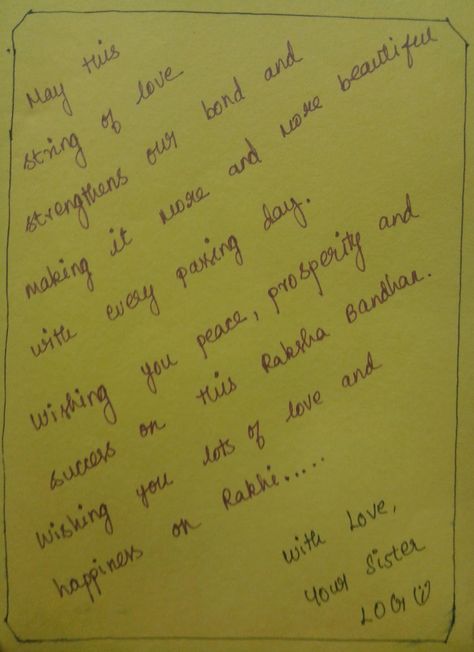 May this
string of love
strengthens our bond and
making it more and more beautiful
with every passing day.
Wishing you peace, prosperity and
success on this Raksha Bandhan.
Wishing you lots of love and
happiness on Rakhi.....
With Love,
Your Sister